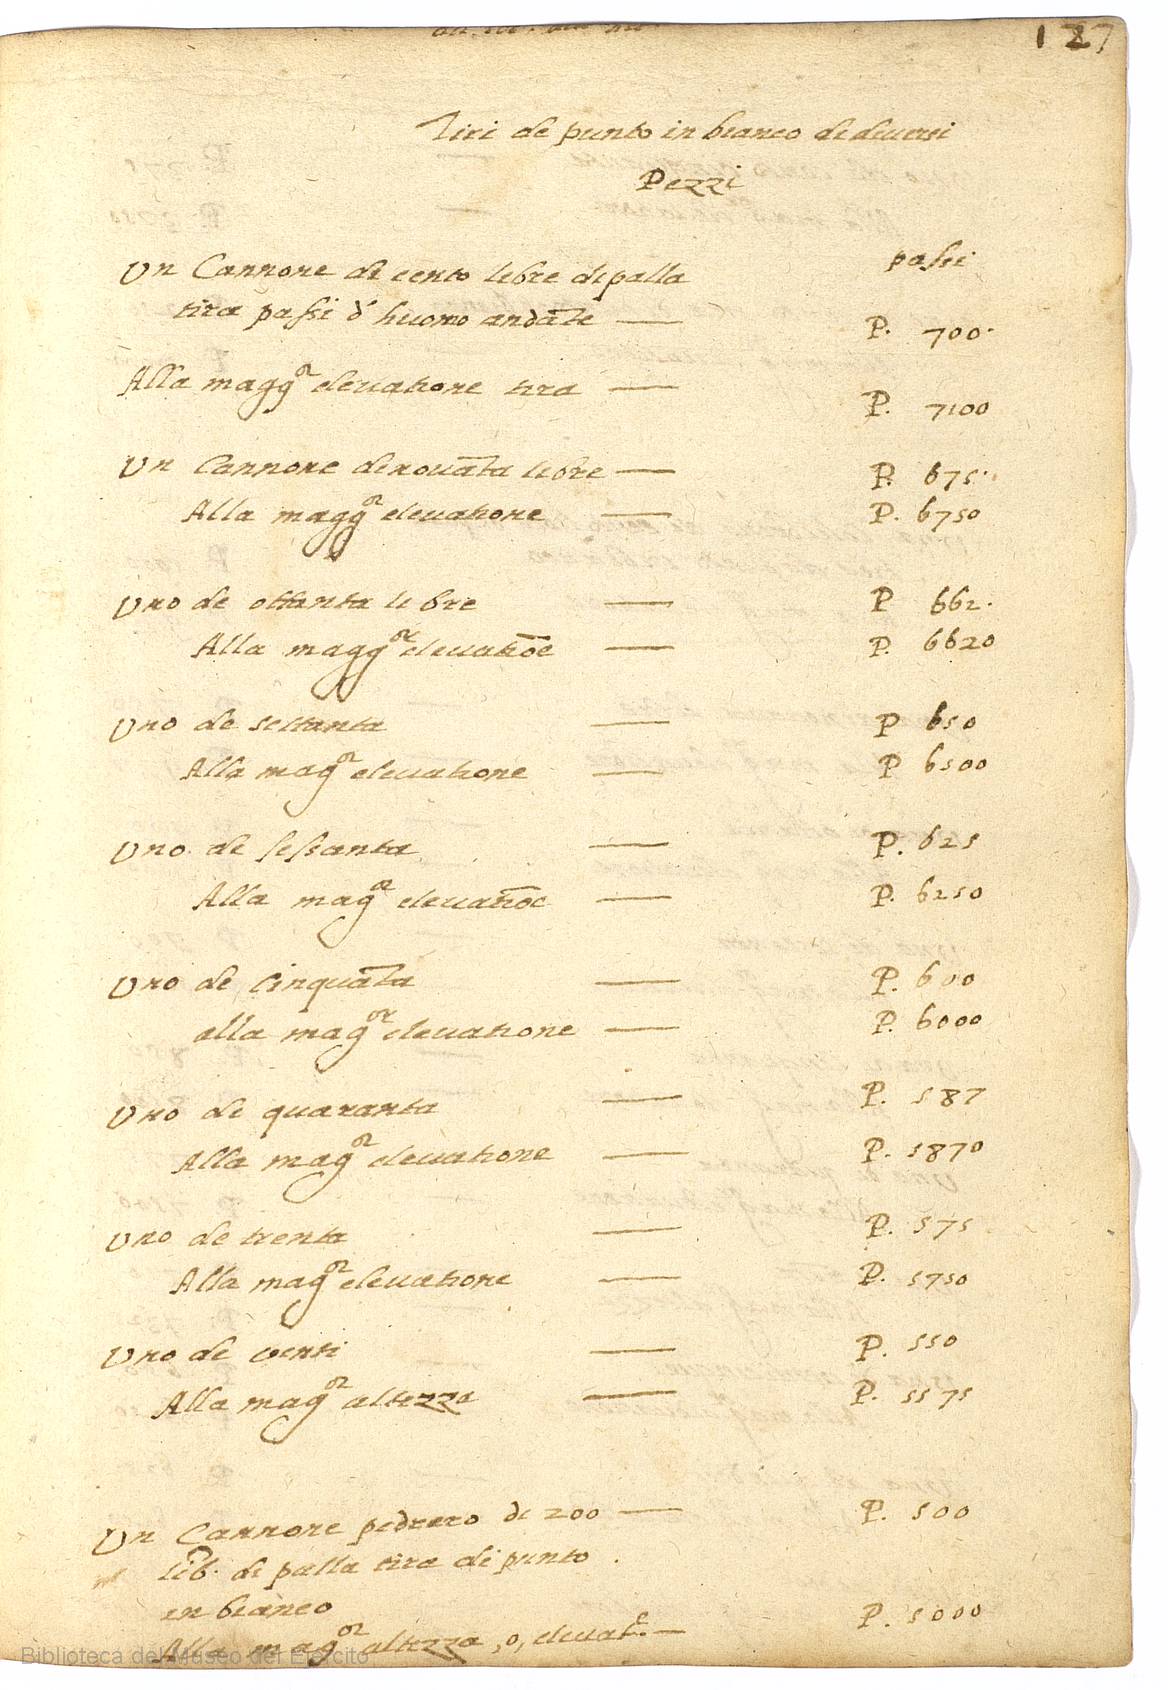 127
Tiri de punto in bianco di diuersi
Pezzi
passi
Un Cannone di cento libre di palla
tira passi d'huomo andāte — P. 700.
Alla magg.or eleuatione tira — P. 7100
Un Cannone di nouāta libre — P. 675.
Alla magg.or eleuatione — P. 6750
Uno de ottanta libre — P 662.
Alla magg.or eleuatiōe — P. 6620
Uno de settanta — P 650
Alla mag.or eleuatione — P 6500
Uno de sessanta — P. 625
Alla mag.or eleuatiōe — P. 6250
Uno de cinquāta — P. 600
alla mag.or eleuatione — P. 6000
Uno de quaranta — P. 587
Alla mag.or eleuatione — P. 5870
Uno de trenta — P. 575
Alla mag.or eleuatione — P. 5750
Uno de venti — P. 550
Alla mag.or altezza — P. 5575
Un Cannone pedrero di 200 — P. 500
lib. di palla tira di punto
in bianco
Alla mag.or altezza, o, eleuat.e — P. 5000
Biblioteca del Museo del Ejército